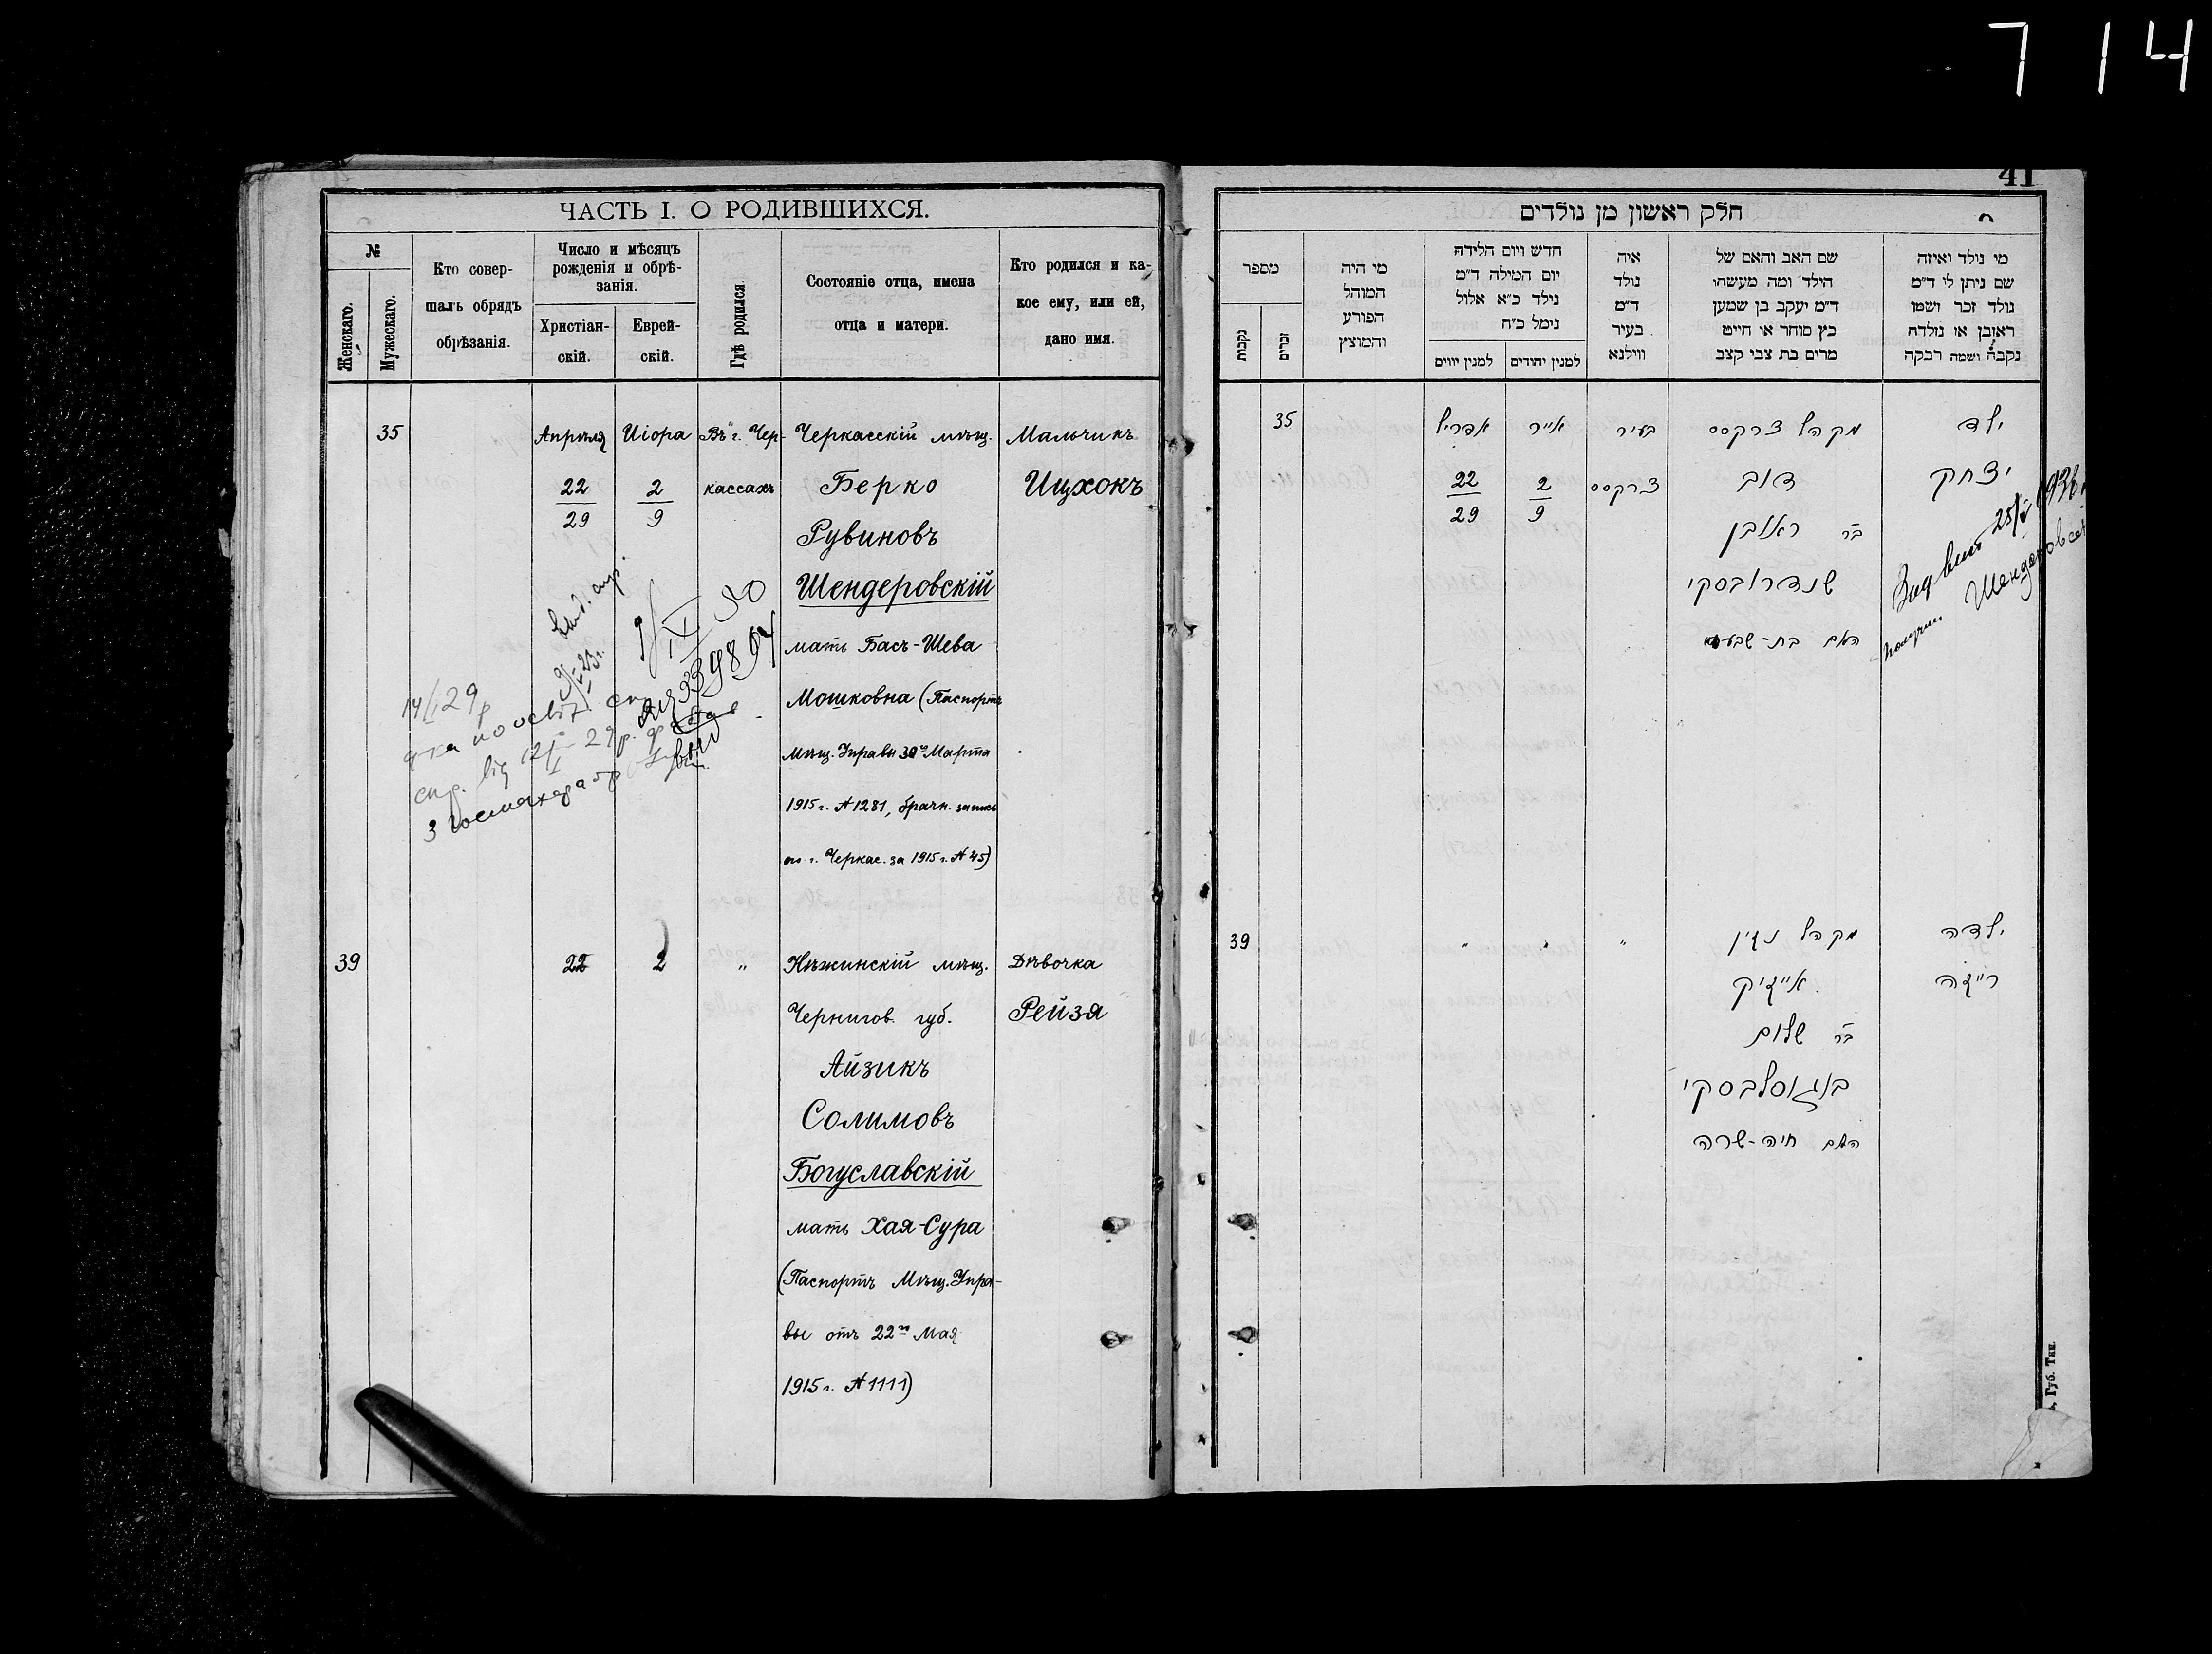 7 14
41
ЧАСТЬ I. О РОДИВШИХСЯ.
№
Женскаго.
Мужескаго.
Кто совер-
шалъ обрядъ
обрѣзанія.
Число и мѣсяцъ
рожденія и обрѣ-
занія.
Христіан-
скій.
Еврей-
скій.
Гдѣ родился.
Состояніе отца, имена
отца и матери.
Кто родился и ка-
кое ему, или ей,
дано имя.
35 Апрѣля Иіора Въ г. Чер- Черкасскій мѣщ. Мальчикъ
22 2 кассахъ Берко Ицхокъ
29 9
Рувиновъ
Шендеровскій
мать Бася-Шева
Мошковна (Паспортъ
Мѣщ. Управы 30го Марта
1915 г. № 1281, брачн. запись
по г. Черкас. за 1915 г. № 45)
14/I 29р
39 22 2 " Нѣжинскій мѣщ. Дѣвочка
Чернигов. губ. Рейзя
Айзикъ
Солимовъ
Богуславскій
мать Хая-Сура
(Паспортъ Мѣщ. Упра-
вы отъ 22го Мая
1915 г. № 1111)
חלק ראשון מן נולדים
מי נולד ואיזה
שם ניתן לו ד״מ
נולד זכר ושמו
ראובן או נולדה
נקבה ושמה רבקה
שם האב והאם של
הילד ומה מעשהו
ד״מ יעקב בן שמעון
כץ סוחר או חייט
מרים בת צבי קצב
איה
נולד
ד״מ
בעיר
ווילנא
חדש ויום הלידה
יום המילה ד״מ
נולד כ״א אלול
נימל כ״ח
למנין יהודים
למנין יוונים
מי היה
המוהל
הפורע
והמוצץ
מספר
זכרים
נקבות
ילד מקהל צרקסס בעיר אייר אפריל 35
יצחק דוב צרקסס 2 22
9 29
בר ראובן
שנדרובסקי
האם בת-שבע
Шендеровсь
ילדה מקהל נזין " " " 39
רייזה אייזיק
בר שלום
בוגוסלבסקי
האם חיה-שרה
Губ. Тип.